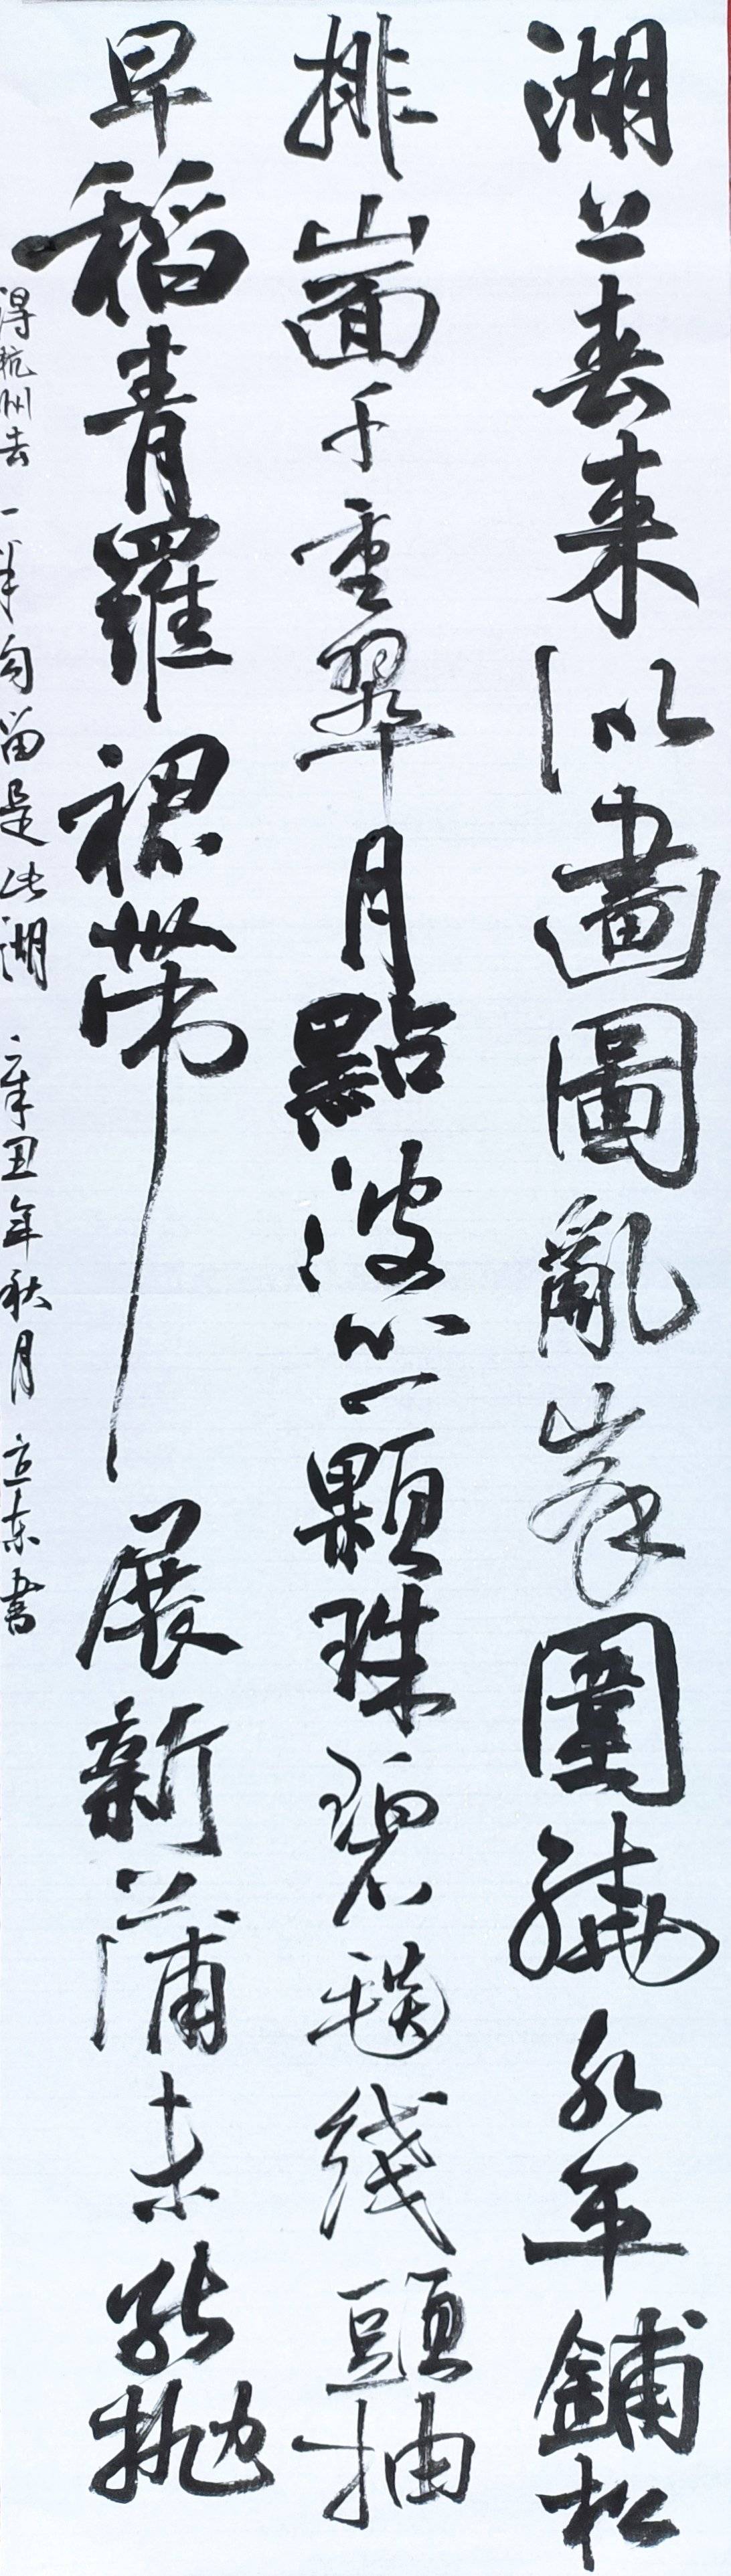 湖上春来似畫圖亂峯圍繞水平鋪松
排山面千重翠月點波心一顆珠碧毯线頭抽
早稻青羅裙帶展新蒲未能抛
得杭州去一半勾留是此湖 辛丑年秋月 立东書